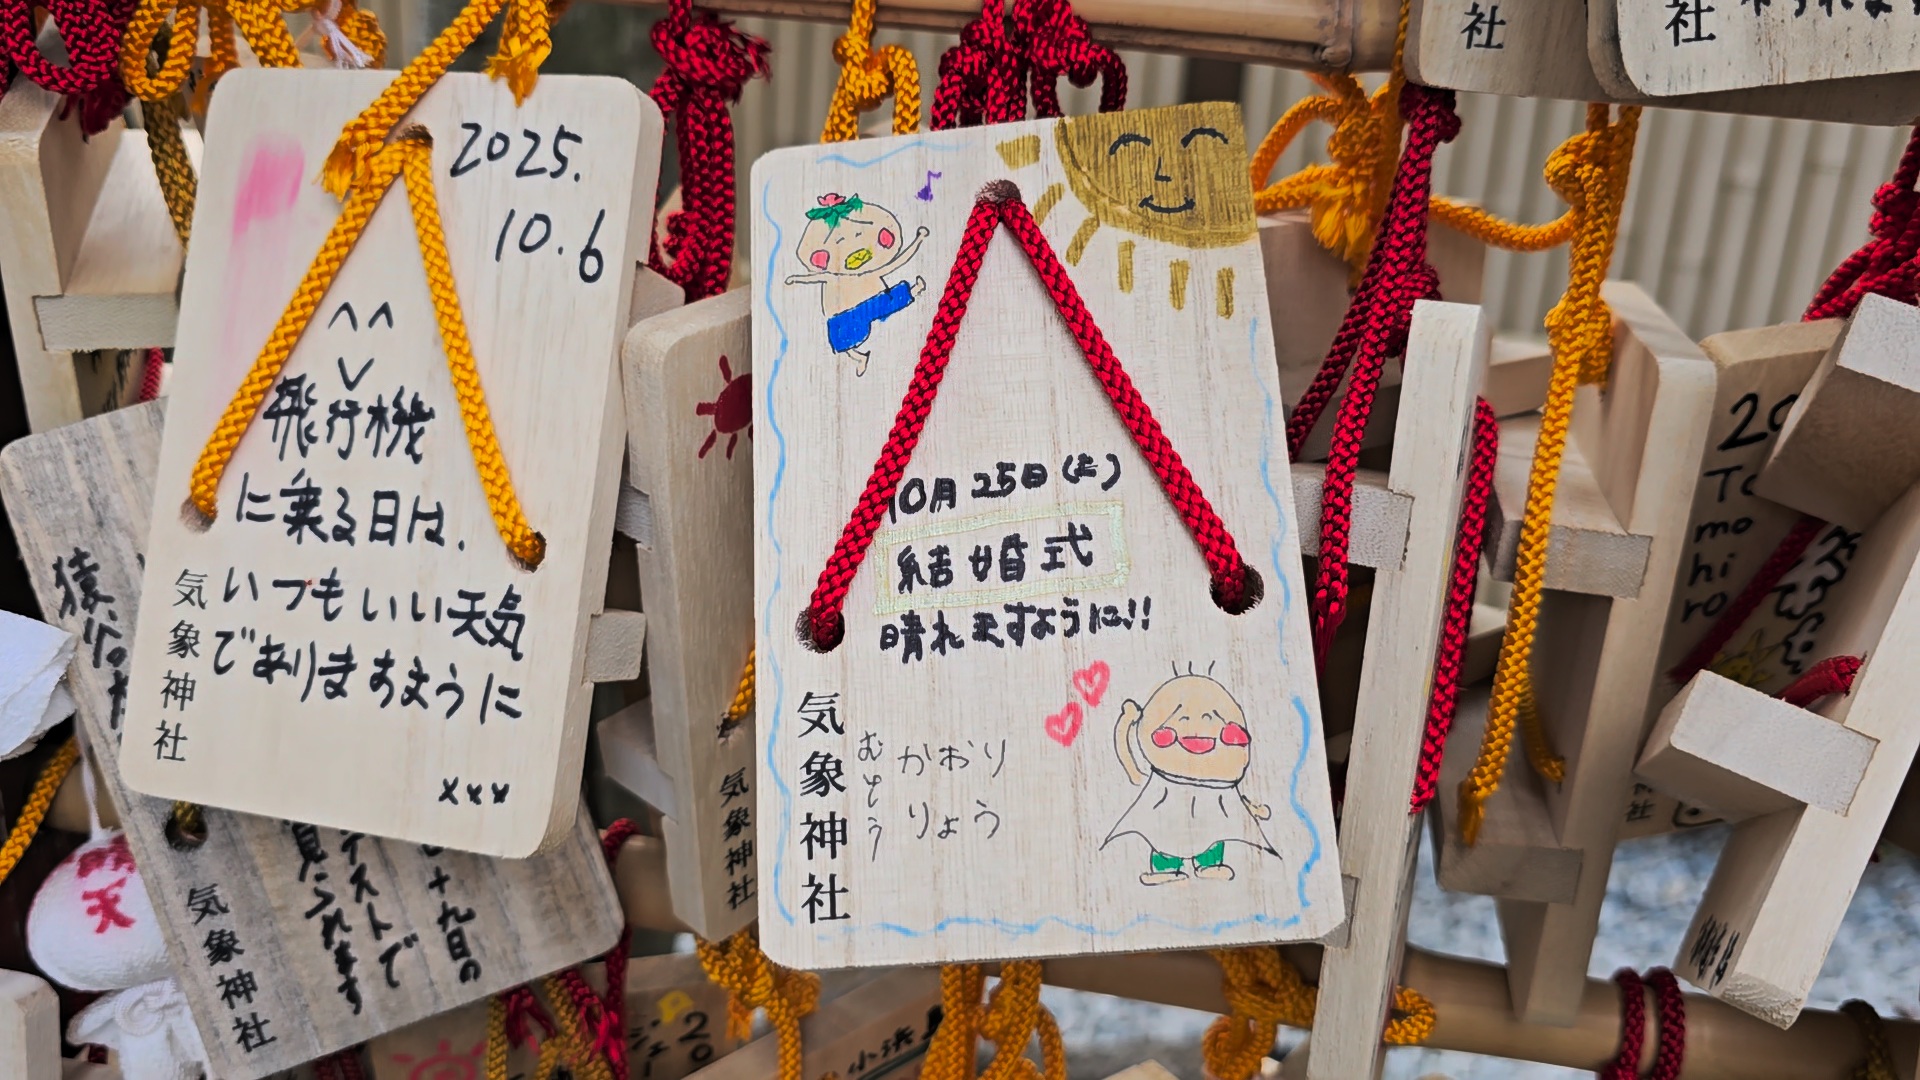 2025.
10.6
飛行機
に乗る日は、
いつもいい天気
でありますように
xxx
気象神社
10月25日(土)
結婚式
晴れますように!!
むとう
かおり
りょう
気象神社
気象神社
気象神社
十九日の
テストで
見られます
天
猿
社
社
20
To
mo
hi
ro
小浜
20